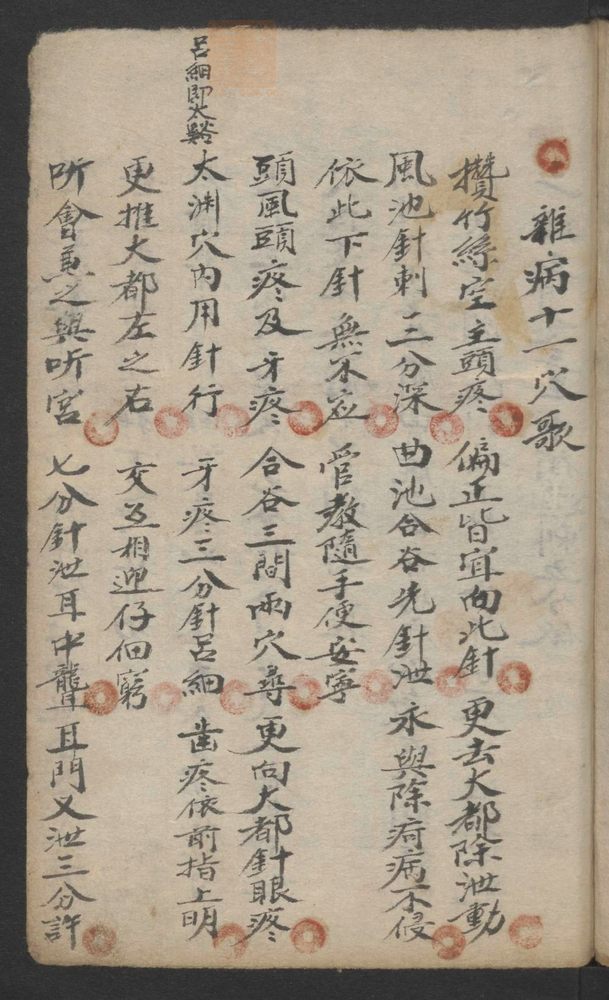 雜病十一穴歌
攢竹絲空主頭疼 偏正皆宜向此針 更去大都除泄動
風池針刺三分深 曲池合谷先針泄 永與除痾病不侵
依此下針無不应 管教隨手便安寧
頭風頭疼及牙疼 合谷三間兩穴尋 更向大都針眼疼
太渊穴內用針行 牙疼三分針呂細 齒疼依前指上明
更推大都左之右 交互相迎仔佃窮
听會兼之與听宮 七分針泄耳中聾 耳門又泄三分許
呂細即太谿